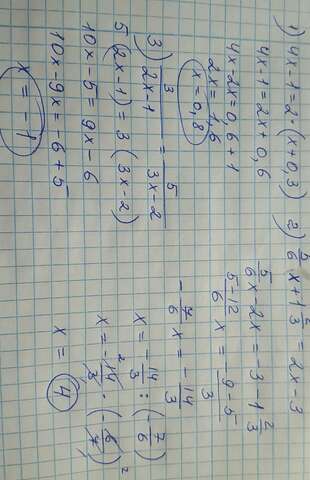 1) 4x-1=2(x+0,3)
4x-1=2x+0,6
4x-2x=0,6+1
2x=1,6
x=0,8
2) 5/6 x+1 2/3=2x-3
5/6 x-2x=-3-1 2/3
5-12/6 x=-9-5/3
-7/6 x=-14/3
x=-14/3:(-7/6)
x=-14/3·(-6/7)
x=4
3) 3/2x-1=5/3x-2
5(2x-1)=3(3x-2)
10x-5=9x-6
10x-9x=-6+5
x=-1